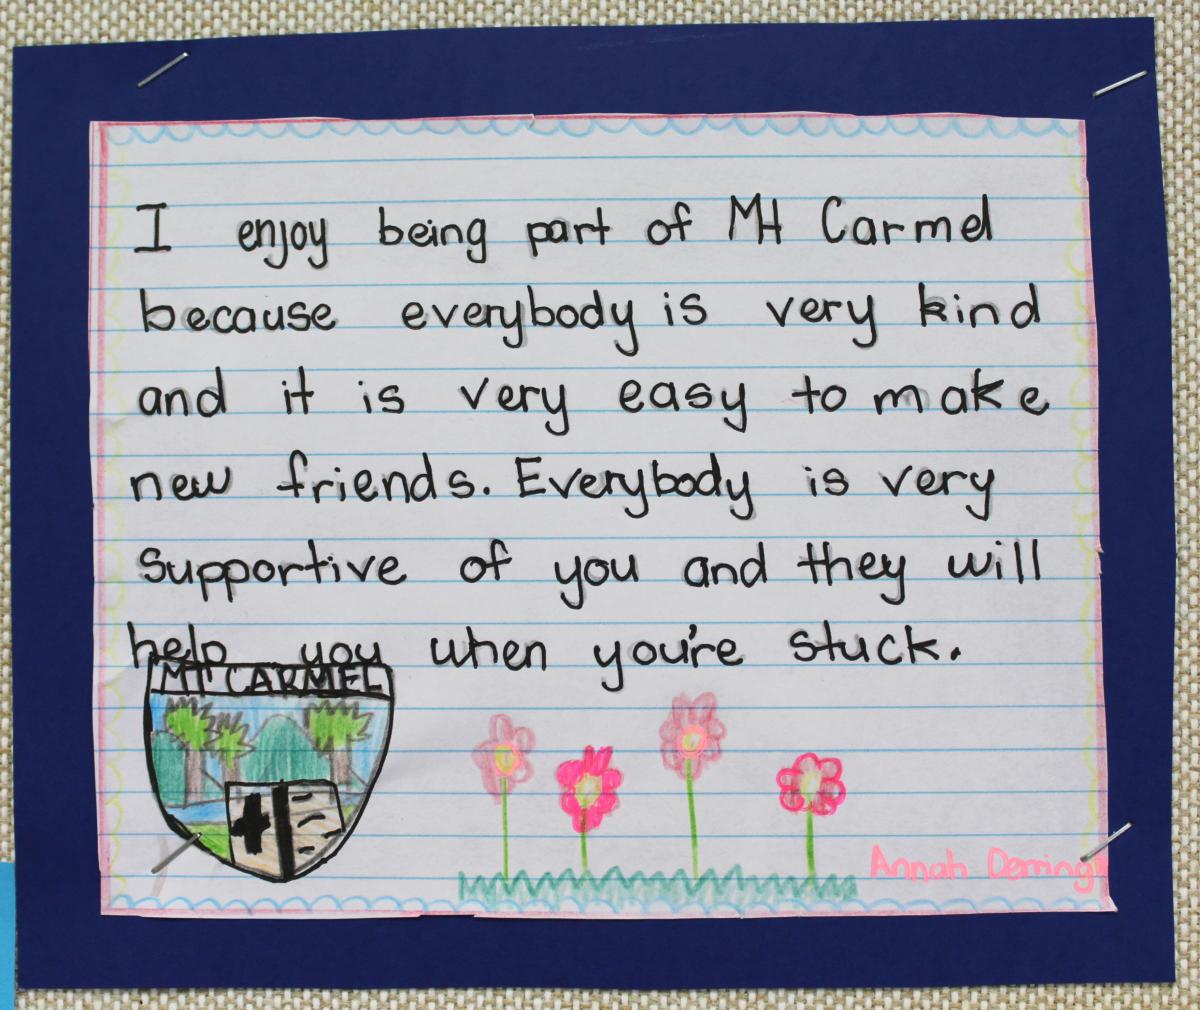 I enjoy being part of Mt Carmel
because everybody is very kind
and it is very easy to make
new friends. Everybody is very
supportive of you and they will
help you when you're stuck.
MT CARMEL
Annah Derring